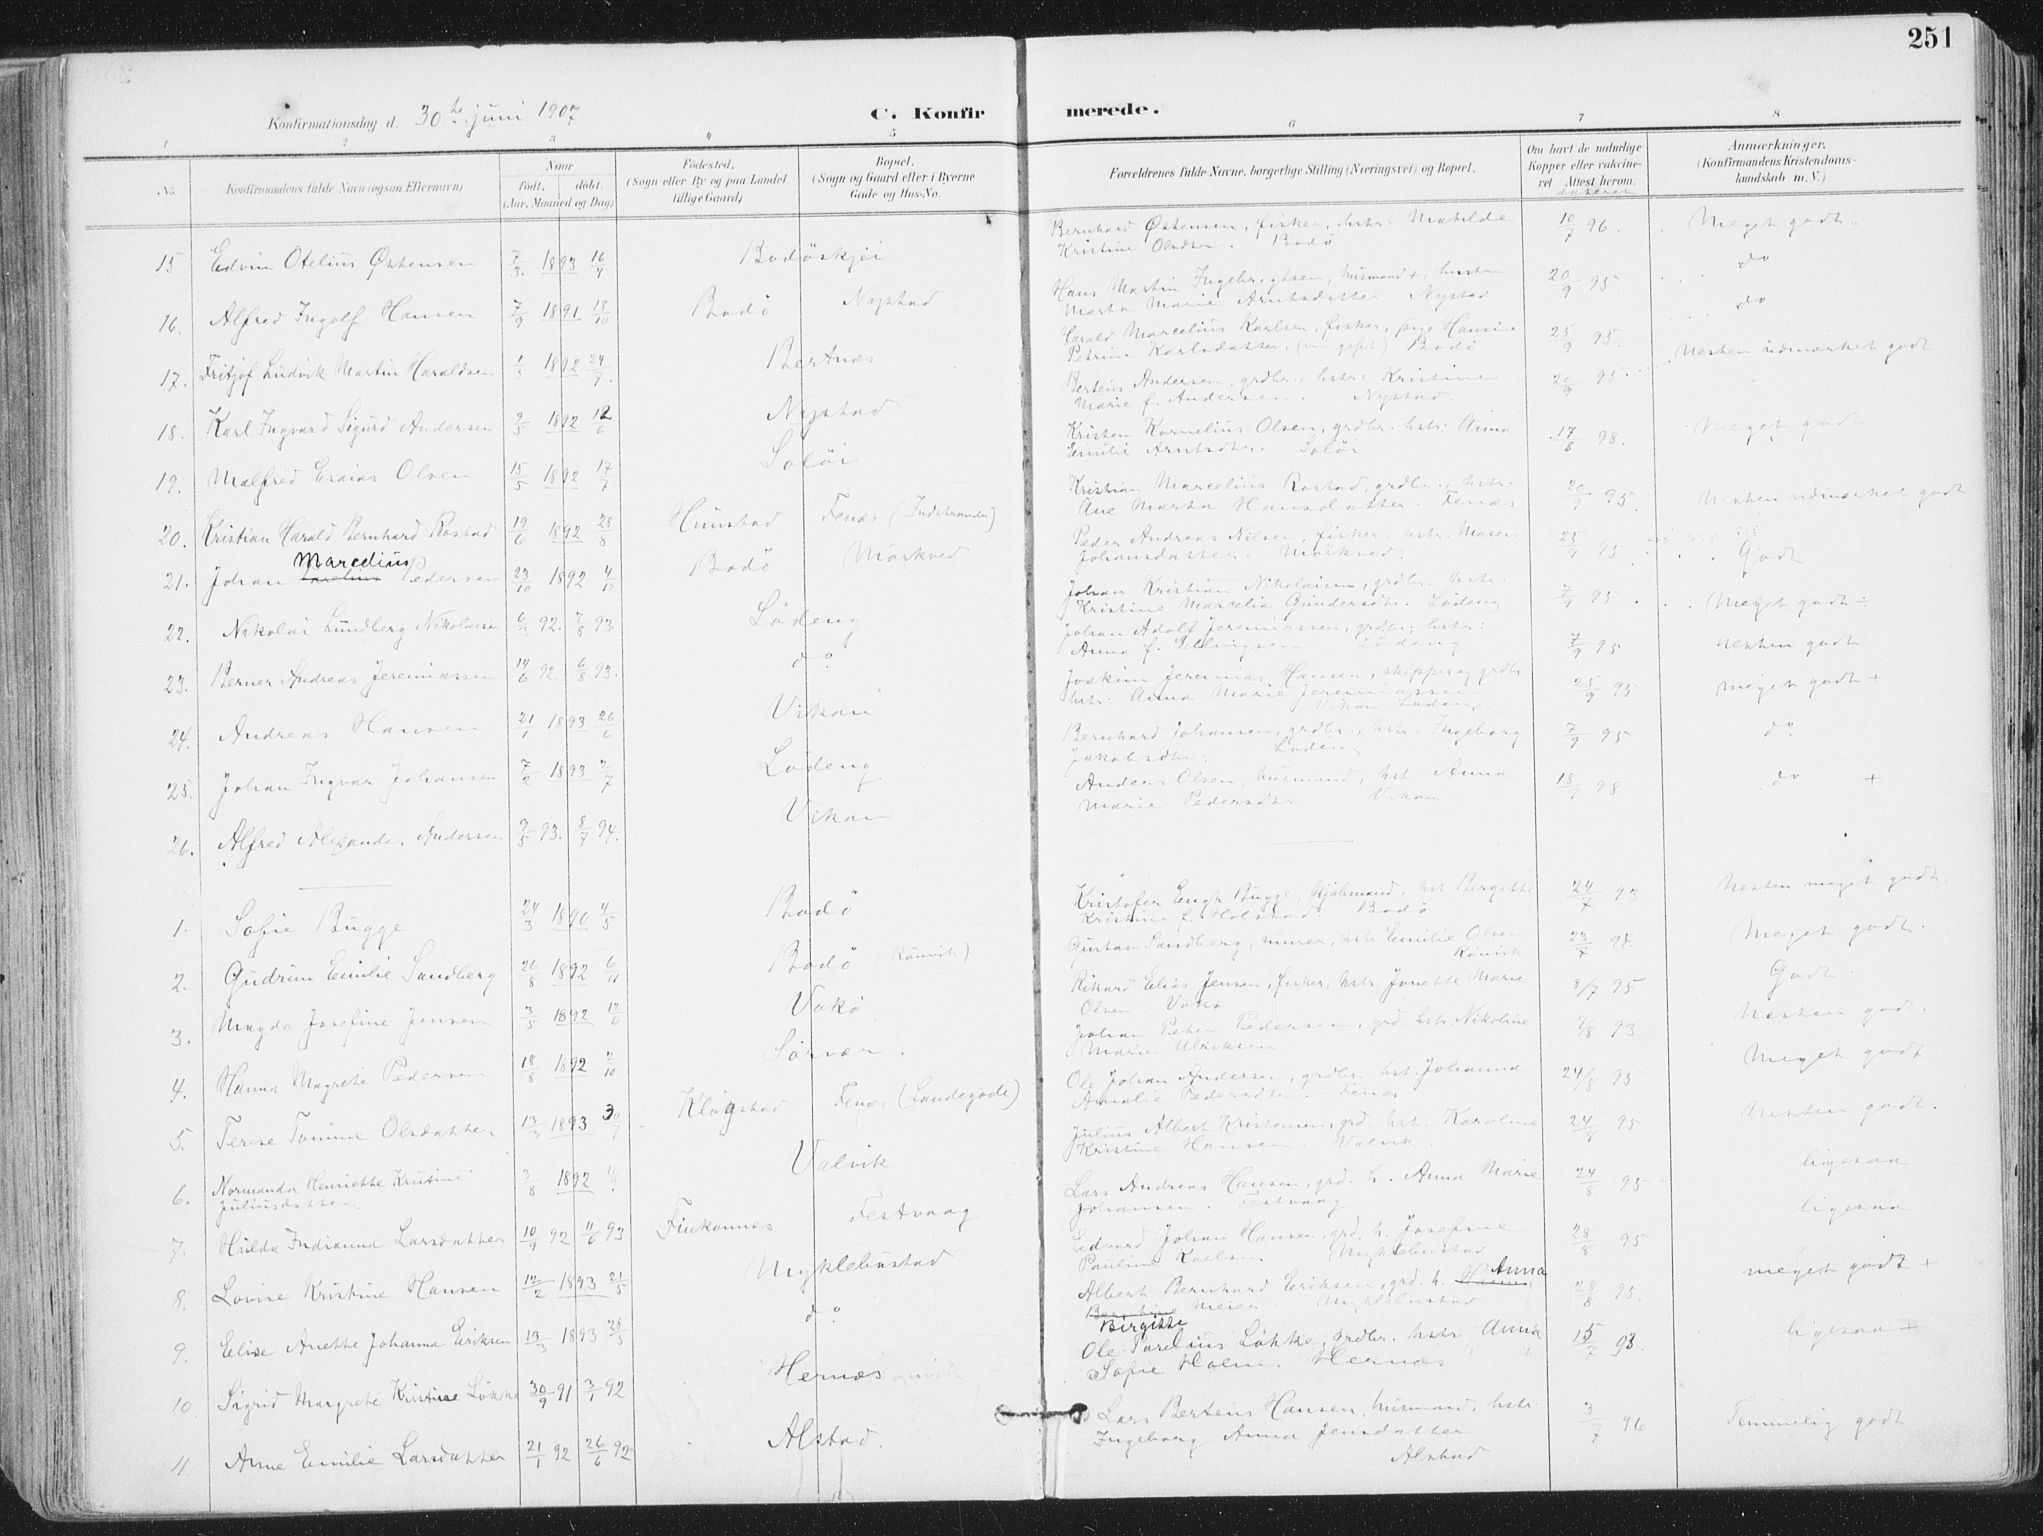 251
Konfirmationsdag d. 30te juni 1907
C. Konfirmerede.
1 2 3 4 5 6 7 8
No.
Konfirmandens fulde Navn (ogsaa Efternavn)
Naar
født. døbt.
(Aar, Maaned og Dag)
Fødested.
(Sogn eller By og paa Landet
tillige Gaard)
Bopæl.
(Sogn og Gaard eller i Byerne
Gade og Hus-No.
Forældrenes fulde Navne, borgerlige Stilling (Næringsvei) og Bopæl.
Om havt de naturlige
Kopper eller vakcine-
ret Attest herom.
Anmærkninger.
(Konfirmandens Kristendoms-
kundskab m. V.)
15 Edvin Otelius Østensen 7/3 1893 16/4 Bodøskjei Bernhard Østensen, fisker, hstr. Matilde Kristine Olsdtr. Bodø 10/7 96. Meget godt.
16. Alfred Ingolf Hansen 7/9 1891 18/10 Bodø Nystad Hans Martin Ingebrigtsen, husmand +, hustru Marta Marie Arntsdatter Nystad 20/9 95. do
17. Fritjof Ludvik Martin Haraldsen 1/5 1892 24/7. Bertnæs Harald Marcelius Karlsen, fisker, pige Hansine Petrine Karlsdatter, (nu gift) Bodø 25/9 95. do
18. Karl Ingvard Sigurd Andersen 2/5 1892 12/6 Nystad Berteus Andersen, grdbr., hstr: Kristine Marie f. Andersen. Nystad. 20/9 95. Nesten udmærket godt
19. Malfred Esaias Olsen 15/5 1892 17/7 Soløi Kristen Kornelius Olsen, grdbr. hstr: Anna Emilie Arntsdtr. Soløi 17/8 98. Meget godt
20. Kristian Harald Bernhard Rostad 19/6 1892 28/8 Hunstad Fenæs (Indstranden) Kristian Marcelius Rostad, grdbr., hstr: Ane Marta Hansdatter. Fenæs 20/9 95. Nesten udmærket godt
21. Johan Marcelius Pedersen 23/10 1892 4/12 Bodø Mørkved Peder Andreas Nilsen, fisker, hstr. Maren Johansdatter. Mørkved 25/9 95. Godt
22. Nikolai Lundberg Nikolaisen 6/3 92. 7/8 93. Lødeng Johan Kristian Nikolaisen, grdbr. hstr. Kristine Marcelia Gundersdtr. Lødeng 7/9 95. Meget godt ÷
23. Berner Andreas Jeremiassen 14/6 92. 6/8 93. do Johan Adolf Jeremiassen, grdbr., hstr: Anna f. Ellingsen Lødeng 7/9 95 Nesten godt
24. Andreas Hansen 21/1 1893 26/6 Vikan Joakim Jeremias Hansen, skipper og grdbr hstr: Anna Marie Jeremiassen Vikan Lødeng 25/9 95 meget godt +
25. Johan Ingvar Johansen 7/2 1893 2/7 Lødeng Bernhard Johansen, grdbr., hstr. Ingeborg Jakobsdtr: Lødeng 7/9 95 do
26. Alfred Alexander Andersen 9/5 93. 8/7 94. Vikan Anders Olsen, husmand, hst: Anna Marie Pedersdtr Vikan 18/9 98 do +
1. Sofie Bugge 24/3 1890 4/5 Bodø Kristofer Engh Bugge, kjøbmand, hst Bergitte Kristine f. Holstad. Bodø 24/7 93 Nesten meget godt.
2. Gudrun Emilie Sandberg 26/8 1892 6/11 Bodø (Rønvik) Gustav Sandberg, murer, hstr Emilie Olsen Rønvik 23/7 94. Meget godt.
3. Magda Josefine Jensen 3/5 1892 12/6 Vakø Rikard Elias Jensen, fisker, hstr Jonette Marie Olsen. Vakø 8/7 95 Godt.
4. Hanna Magrete Pedersen 18/8 1892 2/10 Sørvær. Johan Peter Pedersen, grd. hstr. Nikoline Marie Ulriksen 7/8 93 Nesten godt.
5. Terese Tomine Olsdatter 13/3 1893 30/7 Kløgstad Fenæs (Landegode) Ole Johan Andersen, grdbr. hst. Johanna Amalie Pedersdtr. Fenæs 24/8 95 Meget godt
6. Normanda Henriette Kristine Juliusdatter 3/8 1892 Valvik Julius Albert Kristensen, grd. hst. Karoline Kristine Hansen. Valvik 24/8 95 Nesten godt.
7. Hulda Indianna Larsdatter 10/9 92 11/6 93 Finkonnæs Festvaag Lars Andreas Hansen, grd. h. Anna Marie Johansen. Festvaag 24/8 95 ligesaa
8. Lovise Kristine Hansen 12/2 1893 21/5 Myklebustad Edvard Johan Hansen, grd. h. Josefine Pauline Karlsen Myklebustad 28/8 95 ligesaa
9. Elise Anette Johanna Eriksen 13/3 1893 28/5 do Albert Bernhard Eriksen, grd. h. Anna Birgitte Meier. Myklebustad 28/8 95. meget godt +
10. Sigrid Margrete Kristine Løkke 30/9 91 3/1 92 Hernæs Ole Parelius Løkke, grdbr. hstr Anna Sofie Holm. Hernæs 15/7 93. ligesaa +
11. Anne Emilie Larsdatter 21/1 92 26/6 92 Alstad. Lars Berteus Hansen, husmand, hstr. Ingeborg Anna Jensdatter Alstad 3/7 96 Temmelig godt